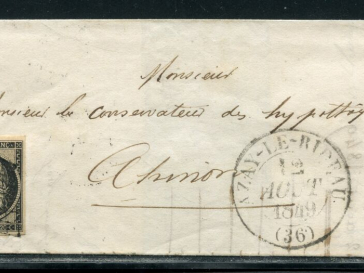 Monsieur
onsieur le conservateur des hypothè
Chinon
AZAY-LE-RIDEAU
12
AOUT
1849
(36)